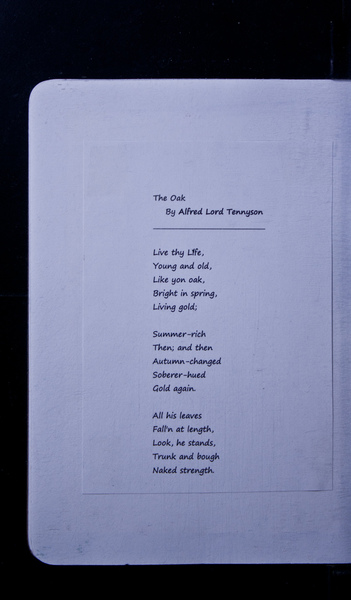 The Oak
By Alfred Lord Tennyson
Live thy Life,
Young and old,
Like yon oak,
Bright in spring,
Living gold;
Summer-rich
Then; and then
Autumn-changed
Soberer-hued
Gold again.
All his leaves
Fall'n at length,
Look, he stands,
Trunk and bough
Naked strength.